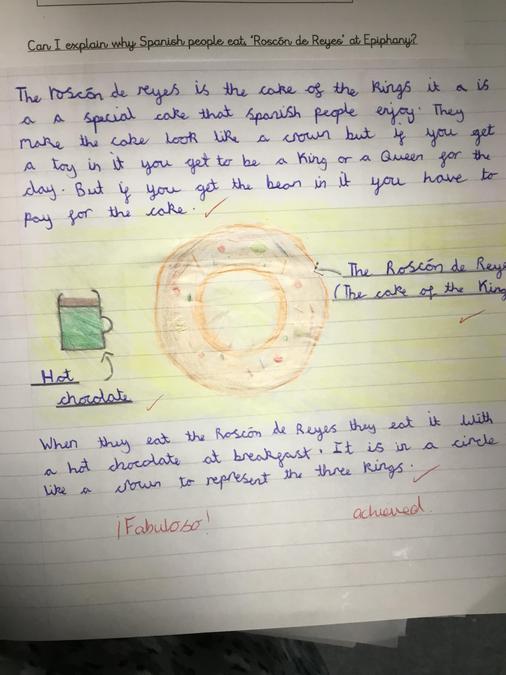 Can I explain why Spanish people eat 'Roscón de Reyes' at Epiphany?
The roscón de reyes is the cake of the Kings it a is
a a special cake that Spanish people enjoy. They
make the cake look like a crown but if you get
a toy in it you get to be a King or a Queen for the
day. But if you get the bean in it you have to
pay for the cake.
The Roscón de Reye
(The cake of the King
Hot
chocolate
When they eat the Roscón de Reyes they eat it with
a hot chocolate at breakgast. It is in a circle
like a crown to represent the three Kings.
¡Fabuloso!
achieved